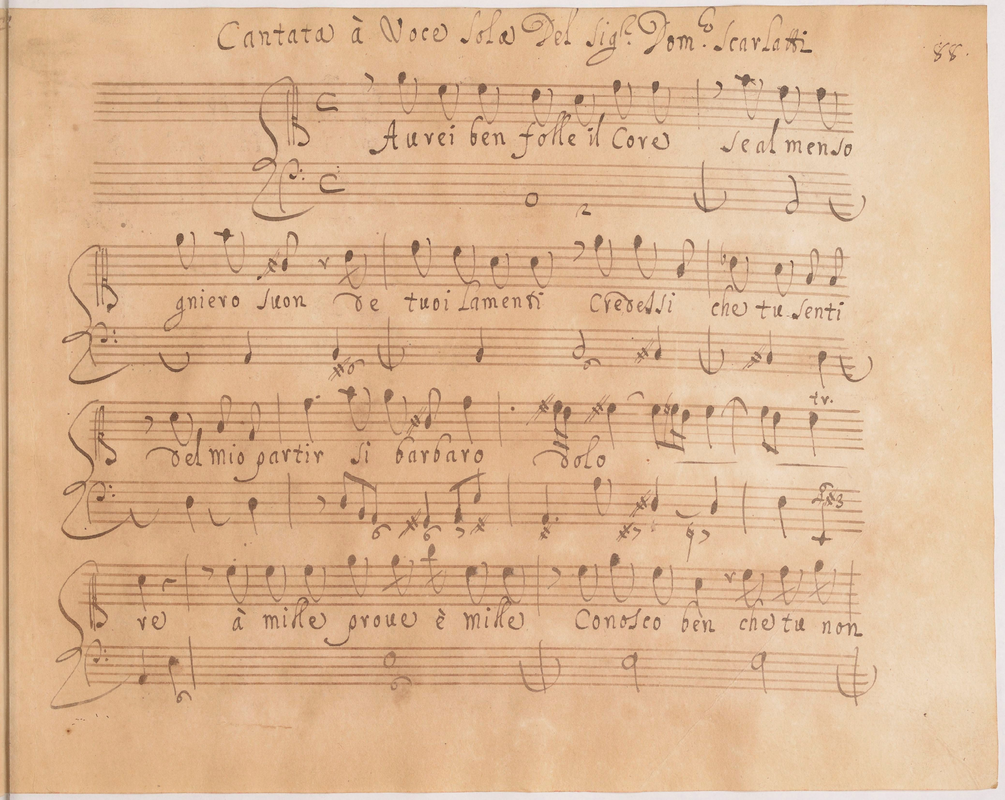 Cantata à Voce Sola Del Sig.r Dom.co Scarlatti
88.
Aurei ben folle il Core se al menso
gniero suon de tuoi lamenti Credessi che tu senti
tr.
del mio partir si barbaro dolo
re à mille proue è mille Conosco ben che tu non